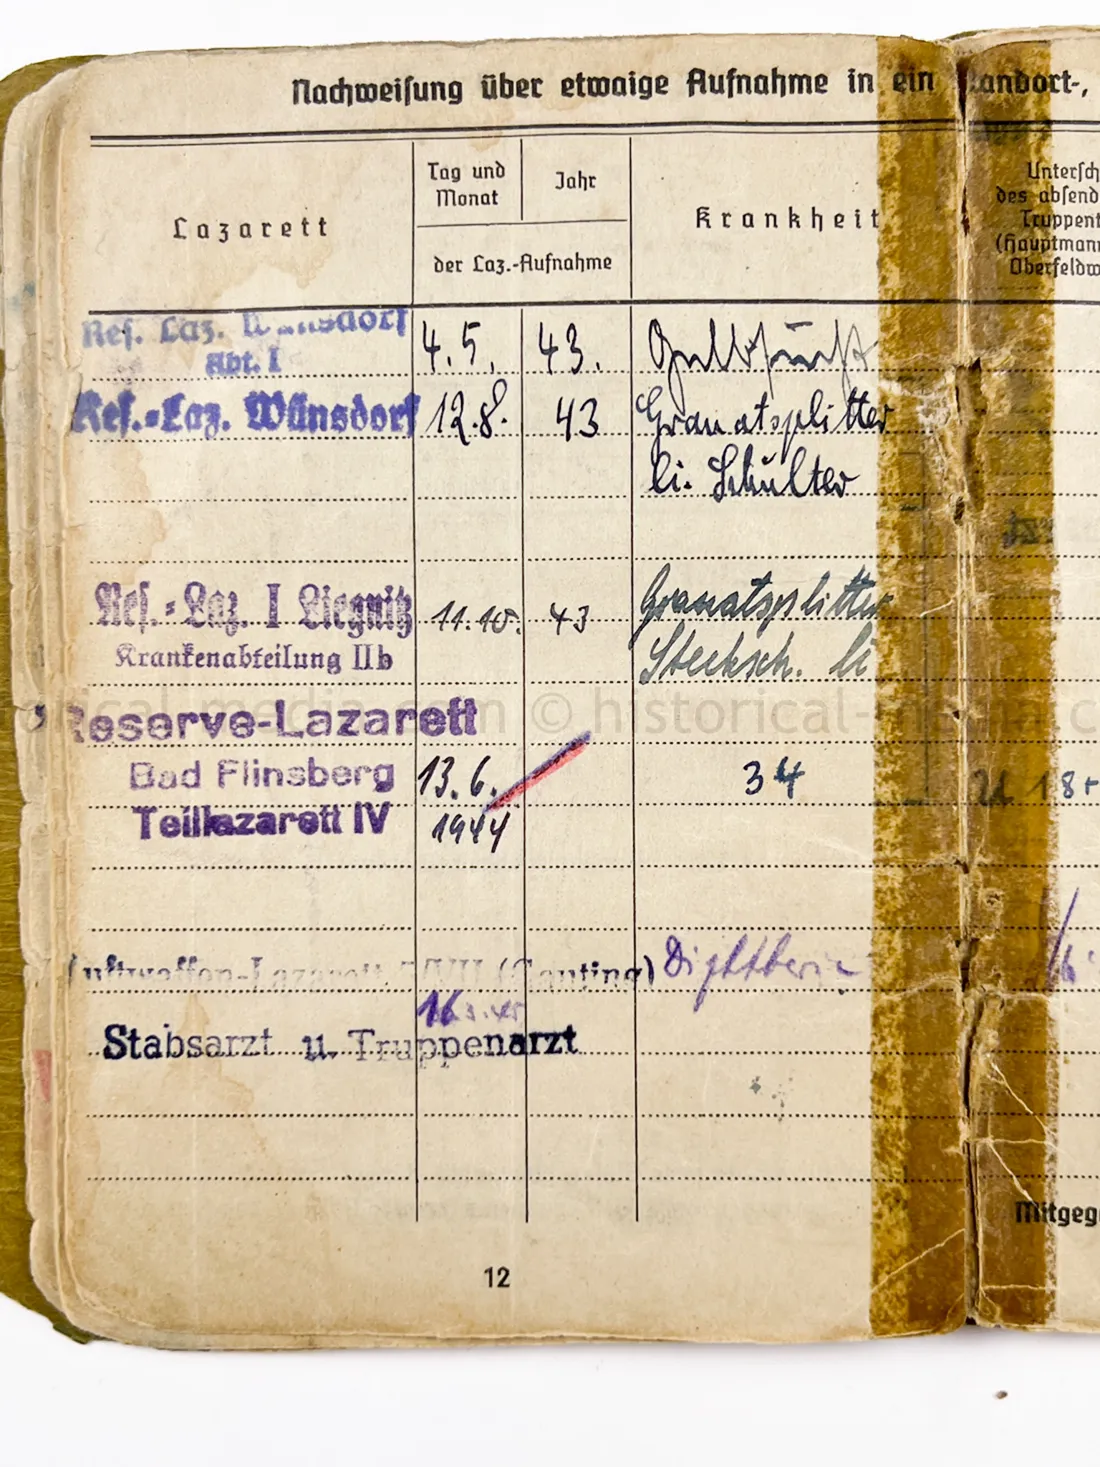 Nachweisung über etwaige Aufnahme in ein Standort-,
Lazarett
Tag und
Monat
Jahr
der Laz.-Aufnahme
Krankheit
Untersch
des absend
Truppent
(Hauptmann
Oberfeldw
Res. Laz. Wünsdorf
Abt. I
4.5.
43.
Res.-Laz. Wünsdorf
12.8.
43
Granatsplitter
li. Schulter
Res.-Laz. I Liegnitz
11.10.
43
Granatsplitter
Krankenabteilung IIb
Stecksch. li
Reserve-Lazarett
Bad Flinsberg
13.6.
34
Teillazarett IV
1944
Luftwaffen-Lazarett (Gauting)
16
Stabsarzt u. Truppenarzt
Mitgeg
12
© historical